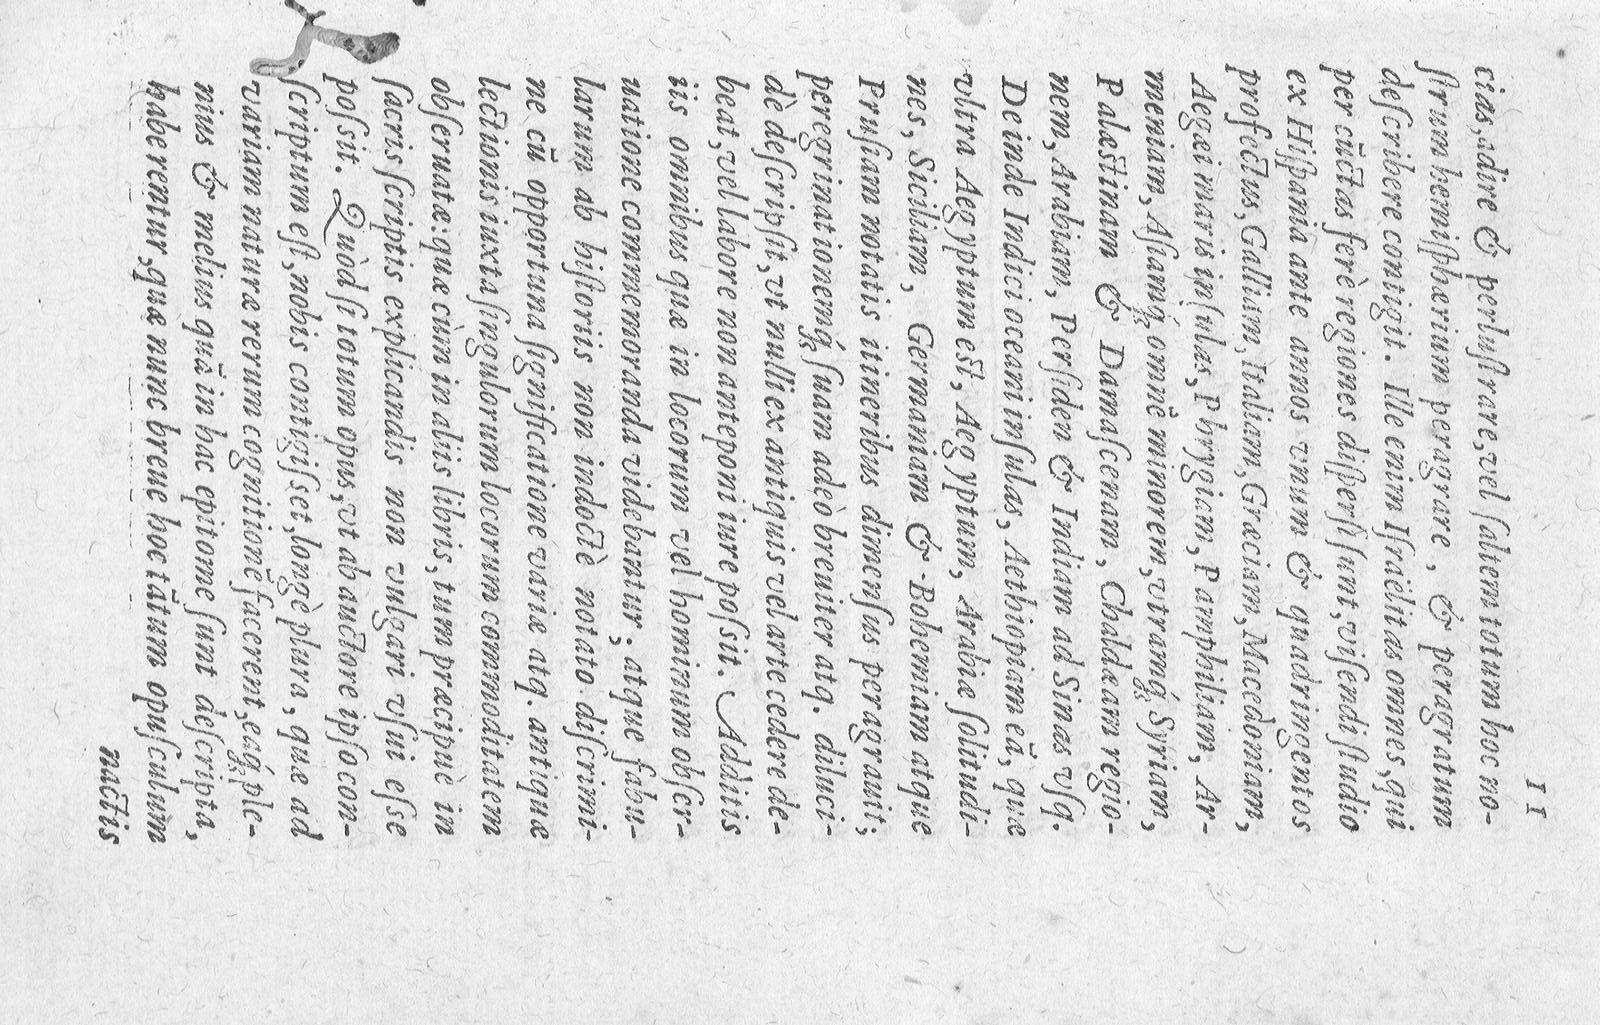 11
cias, adire & perlustrare, vel saltem totum hoc no-
ſtrum hemiſphærium peragrare, & peragratum
deſcribere contigit. Ille enim Iſraëlitas omnes, qui
per cūctas ferè regiones diſperſi ſunt, viſendi ſtudio
ex Hiſpania ante annos vnum & quadringentos
profectus, Galliam, Italiam, Græciam, Macedoniam,
Aegæi maris inſulas, Phrygiam, Pamphiliam, Ar-
meniam, Aſiamq́; omnē minorem, vtramq́; Syriam,
Palæstinam & Damaſcenam, Chaldæam regio-
nem, Arabiam, Perſiden & Indiam ad Sinas vſq.
Deinde Indici oceani inſulas, Aethiopiam eā, quæ
vltra Aegyptum est, Aegyptum, Arabiæ ſolitudi-
nes, Siciliam, Germaniam & Bohemiam atque
Pruſiam notatis itineribus dimenſus peragrauit;
peregrinationemq́; ſuam adeò breuiter atq. diluci-
dè deſcripſit, vt nulli ex antiquis vel arte cedere de-
beat, vel labore non anteponi iure poſsit. Additis
iis omnibus quæ in locorum vel hominum obſer-
uatione commemoranda videbantur; atque fabu-
larum ab hiſtoris non indoctè notato diſcrimi-
ne cū opportuna ſignificatione variæ atq. antiquæ
lectionis iuxta ſingulorum locorum commoditatem
obſeruatæ: quæ cùm in aliis libris, tum præcipuè in
ſacris ſcriptis explicandis non vulgari vſui eſse
poſsit. Quòd ſi totum opus, vt ab auctore ipſo con-
ſcriptum eſt, nobis contigiſset, longè plura, quæ ad
variam naturæ rerum cognitionē facerent, eaq́; ple-
nius & melius quā in hac epitome ſunt deſcripta,
haberentur, quæ nunc breue hoc tātum opuſculum
nactis